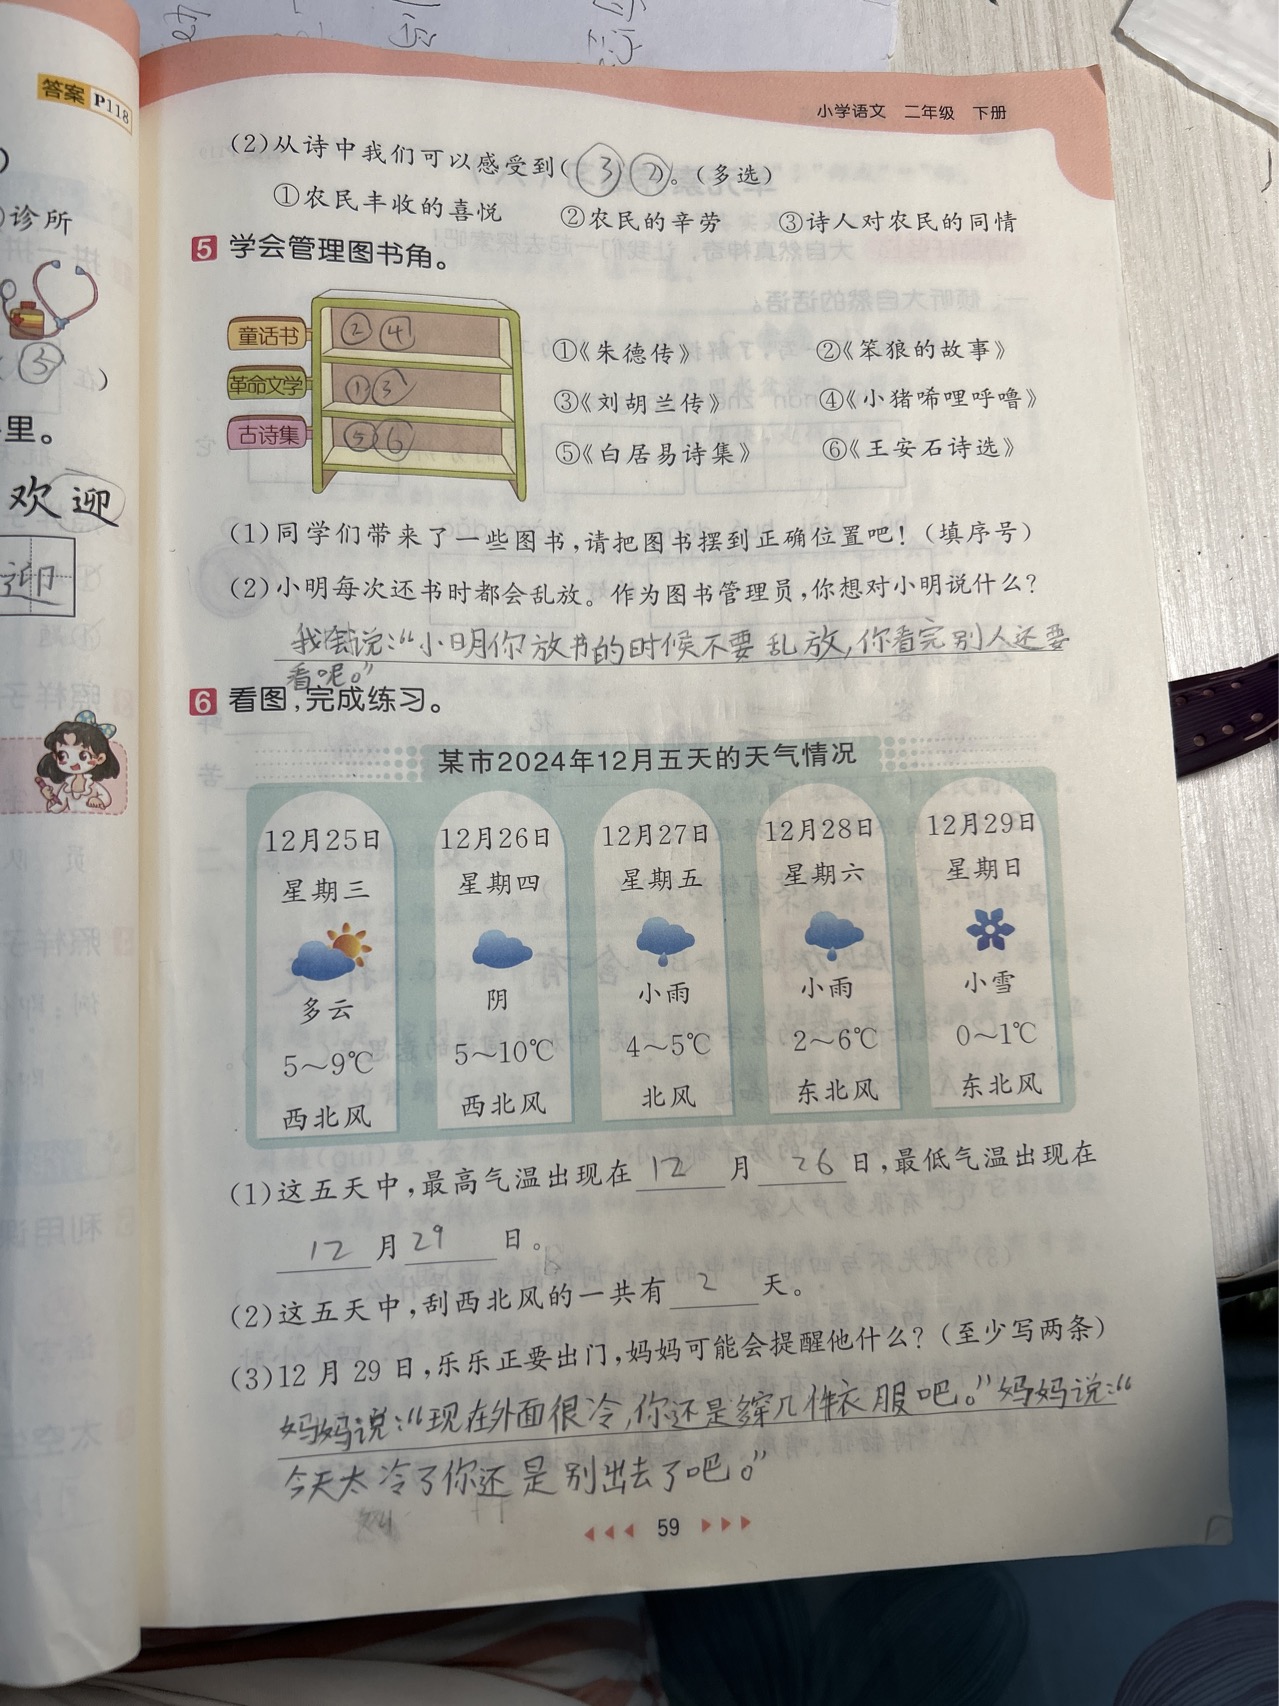 答案 P118
小学语文 二年级 下册
)
诊所
③
)
里。
欢迎
迎
(2)从诗中我们可以感受到(③②)。(多选)
①农民丰收的喜悦 ②农民的辛劳 ③诗人对农民的同情
5 学会管理图书角。
童话书 ②④
革命文学 ①③
古诗集 ⑤⑥
①《朱德传》 ②《笨狼的故事》
③《刘胡兰传》 ④《小猪唏哩呼噜》
⑤《白居易诗集》 ⑥《王安石诗选》
(1)同学们带来了一些图书,请把图书摆到正确位置吧!(填序号)
(2)小明每次还书时都会乱放。作为图书管理员,你想对小明说什么?
我会说:“小明你放书的时候不要乱放,你看完别人还要
看呢。”
6 看图,完成练习。
某市2024年12月五天的天气情况
12月25日 12月26日 12月27日 12月28日 12月29日
星期三 星期四 星期五 星期六 星期日
多云 阴 小雨 小雨 小雪
5~9℃ 5~10℃ 4~5℃ 2~6℃ 0~1℃
西北风 西北风 北风 东北风 东北风
(1)这五天中,最高气温出现在12月26日,最低气温出现在
12月29日。
(2)这五天中,刮西北风的一共有2天。
(3)12月29日,乐乐正要出门,妈妈可能会提醒他什么?(至少写两条)
妈妈说:“现在外面很冷,你还是多穿几件衣服吧。”妈妈说:“
今天太冷了你还是别出去了吧。”
59